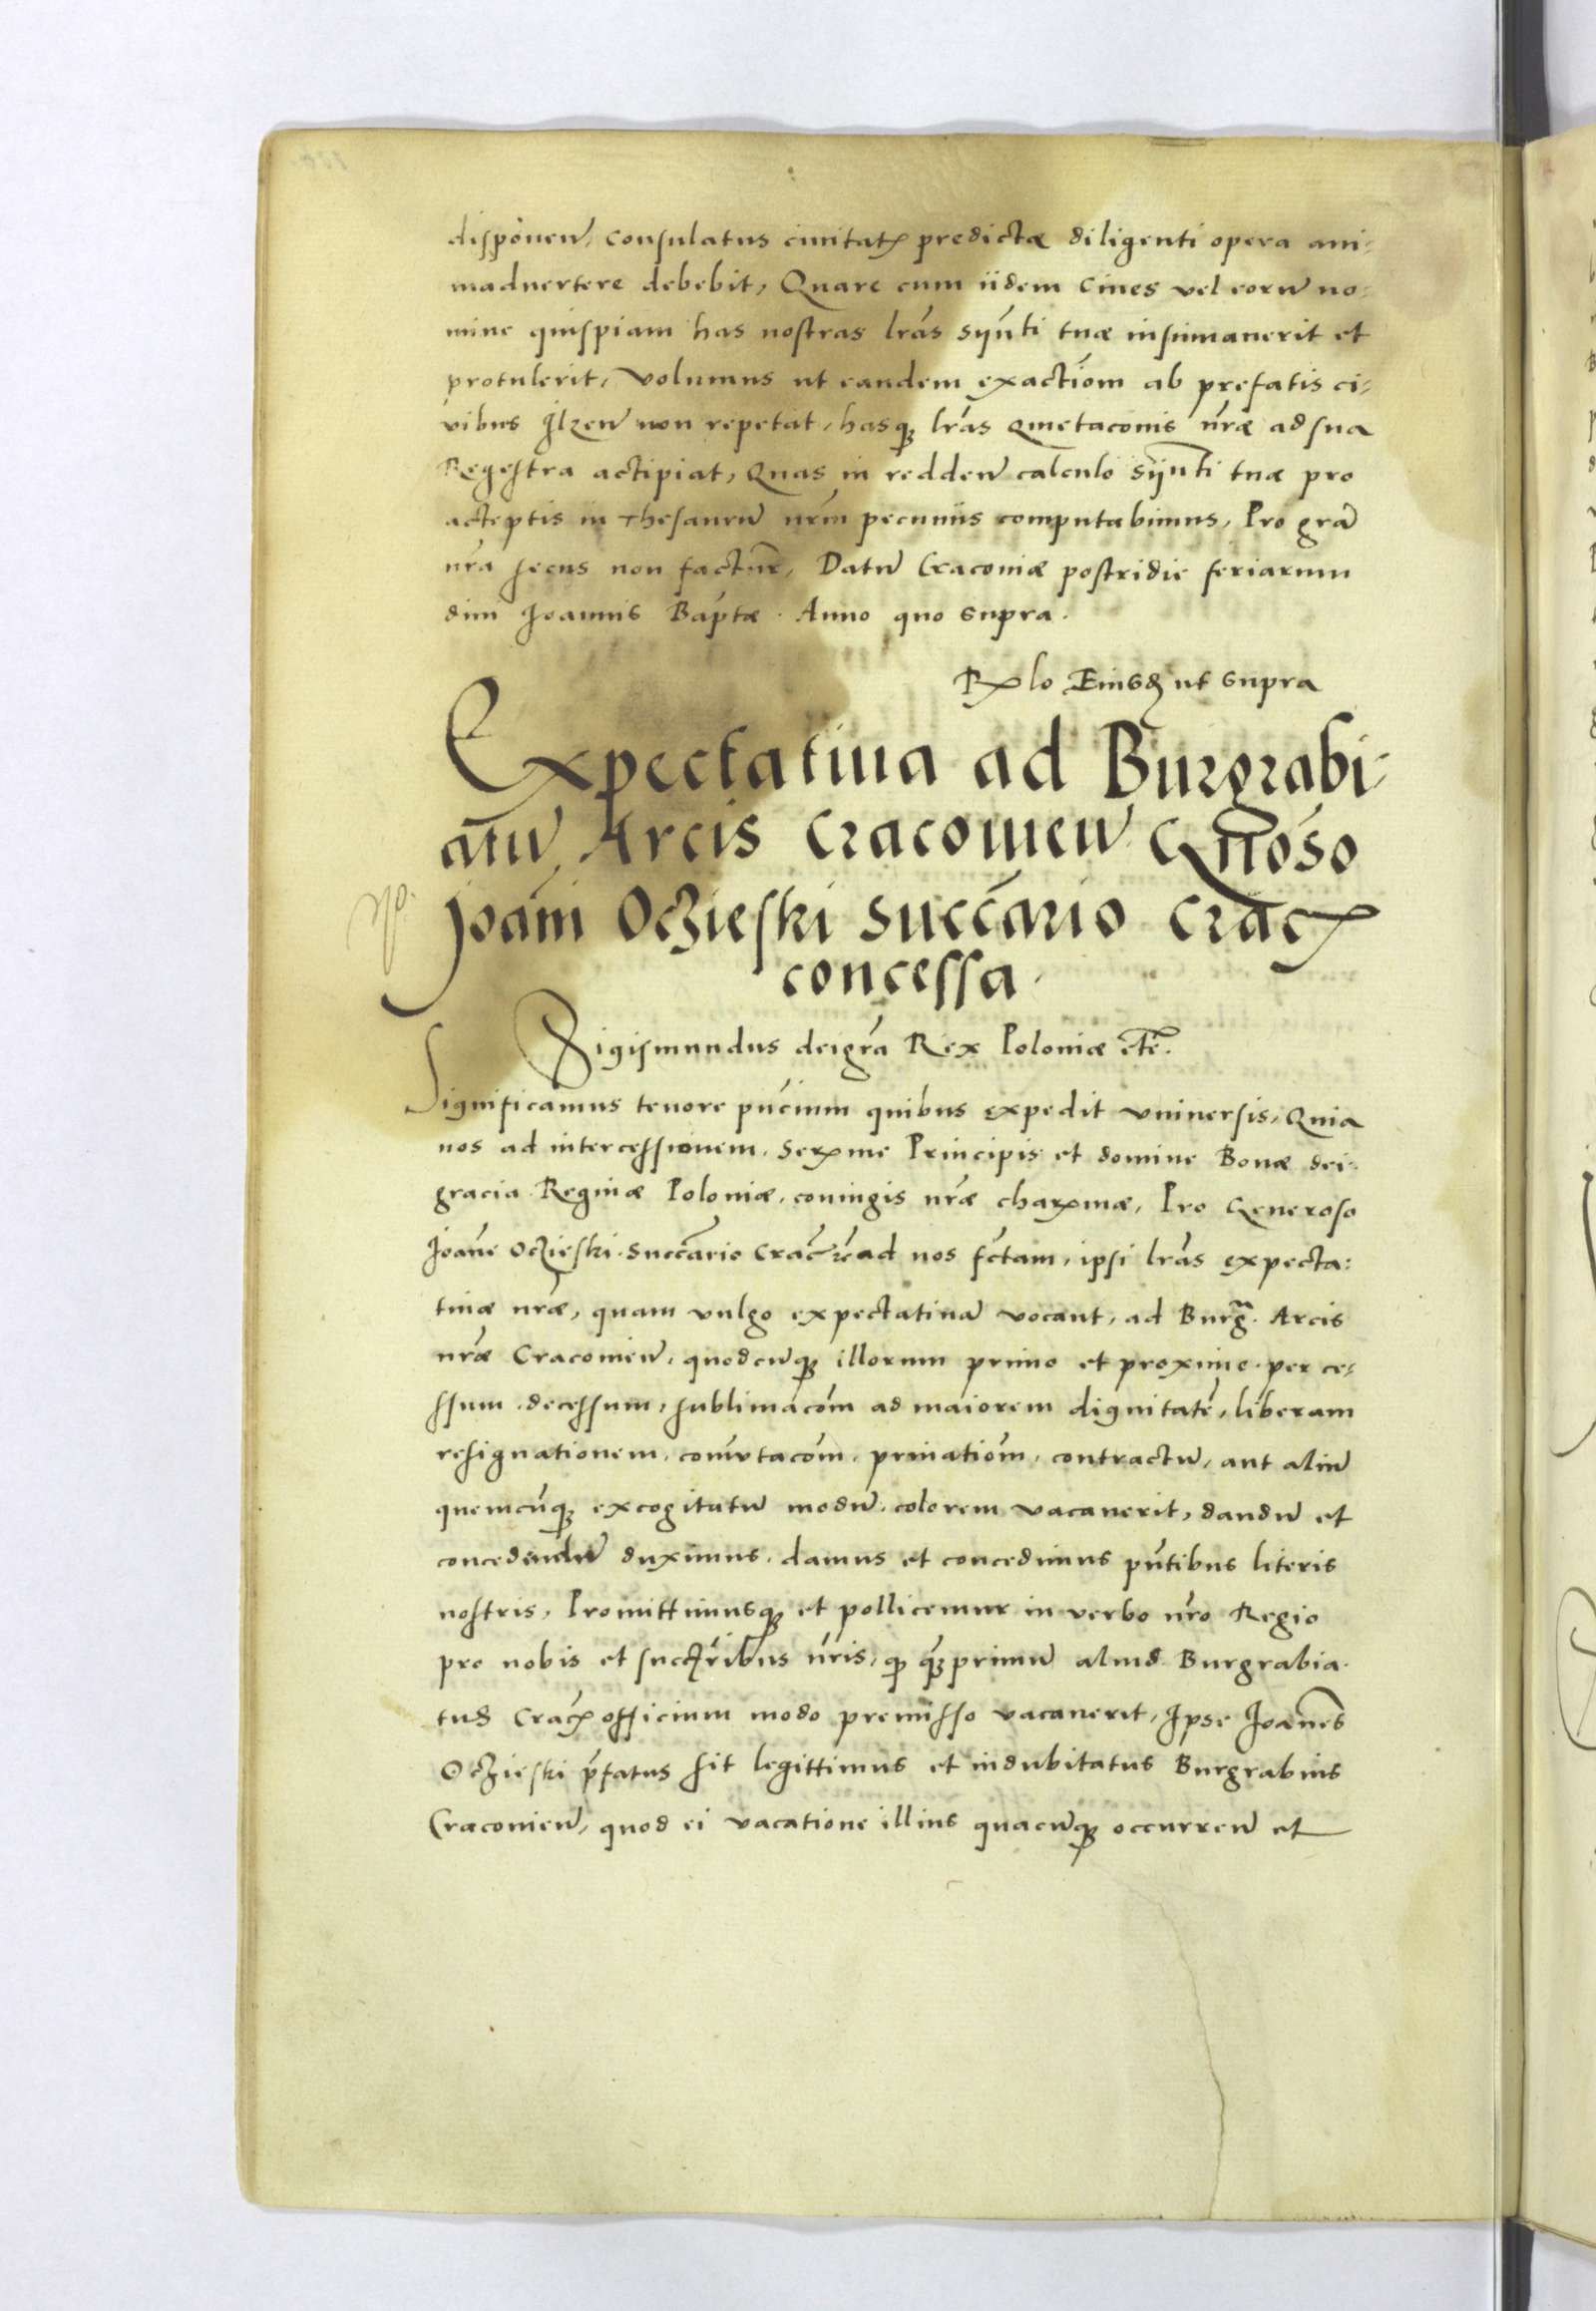 disponen̄, consulatus ciuitatꝭ predictæ diligenti opera ani-
maduertere debebit, Quare cum iidem Ciues vel eorū no-
mine quispiam has nostras lr̄as syn̄ti tuæ insinuauerit et
protulerit, volumus ut eandem exactiōm ab prefatis ci-
vibus Ilzen̄ non repetat, hasqꝫ lr̄as quietacōnis nr̄æ ad sua
Regestra accipiat, Quas in redden̄ calculo syn̄ti tuæ pro
acceptis in Thesaurū nrm̄ pecuniis computabimus, Pro grā
nrā secus non factur̄, Datū Craconiæ postridie feriarum
diui Joannis Bap̄tæ. Anno quo supra.
Rꝭlo Eiusd ut supra
Expectatiua ad Burgrabi-
atū Arcis Cracouien̄ Gn̄roso
Joan̄i Oczieski Succ̄ario Cracꝭ
concessa.
Sigismundus dei gr̄a Rex Poloniæ etc̄.
Significamus tenore pn̄cium quibus expedit vniuersis, Quia
nos ad intercessionem, Serꝭme Principis et domine Bonæ dei
gracia Reginæ Poloniæ, coniugis nr̄æ charꝭmæ, Pro Generoso
Joan̄e Oczieski Succ̄ario Crac̄ ad nos fc̄tam, ipsi lr̄as expecta-
tiuæ nr̄æ, quam vulgo expectatiuā vocant, ad Burḡ. Arcis
nr̄æ Cracouien̄, quodcūqꝫ illorum primo et proximo per ce-
ssum, decessum, sublimacōm ad maiorem dignitatē, liberam
resignationem, com̄utacōm, priuatiōm, contractū, aut aliū
quemcūqꝫ excogitatū modū, colorem vacauerit, dandū et
concedendū duximus, damus et concedimus pn̄tibus literis
nostris, Promittimusqꝫ et pollicemur in verbo nr̄o Regio
pro nobis et succr̄ibus nr̄is, qꝫ qꝫprimū aliud Burgrabia-
tus Cracꝭ officium modo premisso vacauerit, Ipse Joannes
Oczieski p̄fatus sit legittimus et indubitatus Burgrabius
Cracouien̄, quod ei vacatione illius quacūqꝫ occurren̄ et